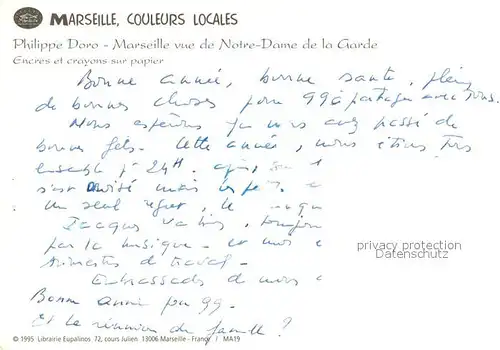 MARSEILLE, COULEURS LOCALES
Philippe Doro - Marseille vue de Notre-Dame de la Garde
Encres et crayons sur papier
Bonne année, bonne santé, plein
de bonnes choses pour 99 à partager avec nous.
Nous espérons que vous avez passé de
bonnes fêtes. Cette année, nous étions tous
ensemble le 24H.
s'est invité mais les
Un seul regret, le
Jacques va bien, toujours
par la musique - et moi
trimestres de travail -
Embrassades de nous
privacy protection
Datenschutz
Bonne année pour 99 -
Et la réunion de famille ?
© 1995 Librairie Eupalinos 72, cours Julien 13006 Marseille - France / MA19